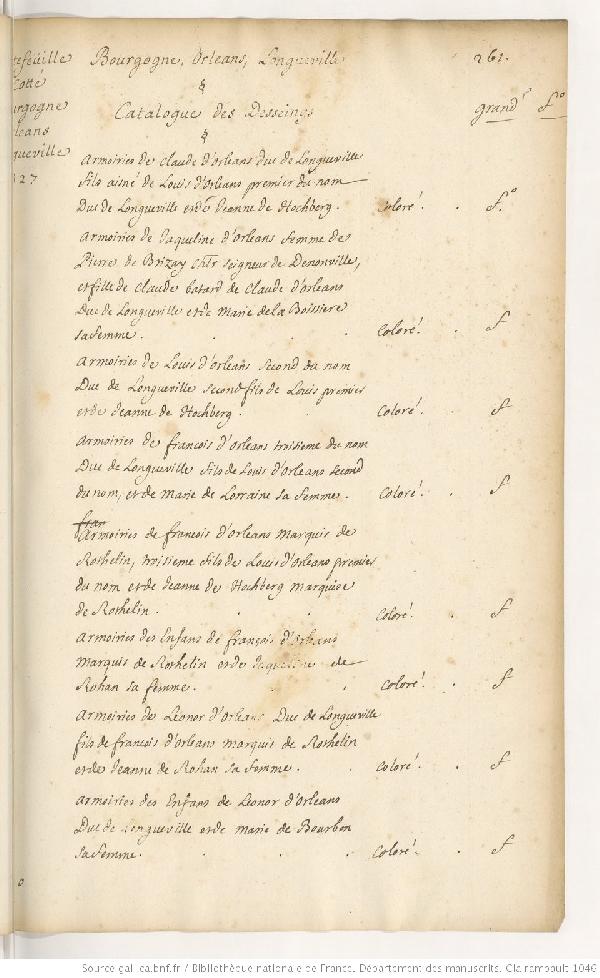 tefeüille
Cotté
urgogne
leans
gueville
127
Bourgogne, Orleans, Longueville
261.
§
Catalogue des Desseings
grand.r f.o
§
Armoiries de Claude d'Orleans duc de Longueville
fils aisné de Louis d'Orleans premier du nom
Duc de Longueville et de Jeanne de Hochberg. Coloré. . f.o
Armoiries de Jaqueline d'Orleans femme de
Pierre de Brizay chlr seigneur de Denonville,
et fille de Claude batard de Claude d'orleans
Duc de Longueville et de Marie de la Boissiere
sa femme. . . Coloré. . f
Armoiries de Louis d'orleans second du nom
Duc de Longueville second fils de Louis premier
et de Jeanne de Hochberg. . Coloré. . f
Armoiries de françois d'Orleans troisieme du nom
Duc de Longueville fils de Louis d'Orleans second
du nom, et de Marie de Lorraine sa femme. Coloré. . f
fran
Armoiries de françois d'Orleans Marquis de
Rothelin, troisieme fils de Louis d'Orleans premier
du nom et de Jeanne de Hochberg Marquise
de Rothelin. . . Coloré. . f
Armoiries des Enfans de françois d'Orleans
Marquis de Rothelin et de Jaqueline de
Rohan sa femme. . . Coloré. . f
Armoiries de Leonor d'Orleans Duc de Longueville
fils de francois d'orleans marquis de Rothelin
et de Jeanne de Rohan sa femme. . Coloré. . f
Armoiries des Enfans de Leonor d'Orleans
Duc de Longueville et de Marie de Bourbon
sa femme. . . . Coloré. . f
Source gallica.bnf.fr / Bibliothèque nationale de France. Département des manuscrits. Clairembault 1046